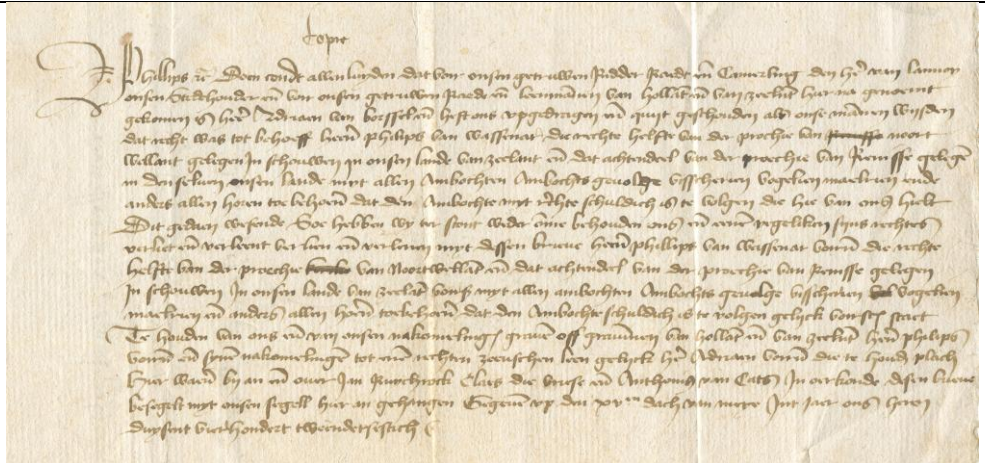 Copie
Phillips etc. Doen condt allen luyden dat voir onsen getruwen Ridder Raedt en Camerling den her van lannoy
onsen Stedehouder en voir onsen getruwen Raede en leenmannen van hollant en van zeelant hier na genoemt
gekomen is her Adriaen van borsselen en heft ons upgedregen en quijt geschouden als onse mannen wijsden
dat recht was tot behoeff heren philips van wassenar die rechte helfte van der prochie van noort
wellant gelegen In schouwen In onsen lande van zeelant en dat achtendeel van der proechie van Renisse gelegen
in den seluen onsen lande myt allen Ambochten Ambochts geuolge visscherien vogelien maelrien ende
anders allen horen toe behoren dat den Ambochte myt rechte schuldich is te volgen die hie van ons hielt
Dit gedaen wesende Soe hebben wy ter stont weder omme behouden ons en eenen ygeliken syns rechtes
verliet en verleent verlien en verlenen myt dessen brieue heren phillips van wassenar voirn die rechte
helfte van der proechie van Noortwellant en dat achtendeel van der proechie van Renisse gelegen
In schouwen In onsen lande van zeelant voirs myt allen ambochten Ambochts geuolge visscherien vogelien
maelrien en anders allen horen toebehoren dat den Ambochte schuldich is te volgen gelyck voirs staet
Te houden van ons en van onsen nakomelingen grauen off grauinnen van hollant en van zeelant heren philips
voirn en synen nakomelingen tot enen rechten zeeuschen leen gelyck her Adriaen voirn die te houden plach
Hier waren by an en ouer Jan Ruychrock Claes die vriese en Anthonis van Cats In oerkonde desen brieue
besegelt myt onsen segell hier an gehangen Gegeuen up den dach van meye Int jaer ons heren
duysent vierhondert tweendetsestich